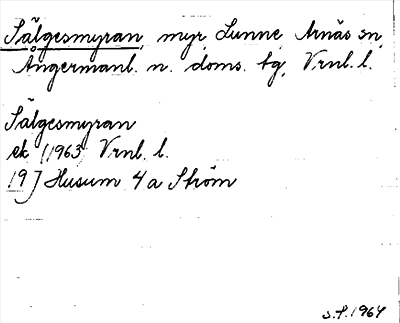 Sälgesmyran, myr, Lunne Arnäs sn,
Ångermanl. n. doms. tg, Vrnl. l.
Sälgesmyran
ek (1963) Vrnl. l.
19J Husum 4 a Ström
S.F. 1964